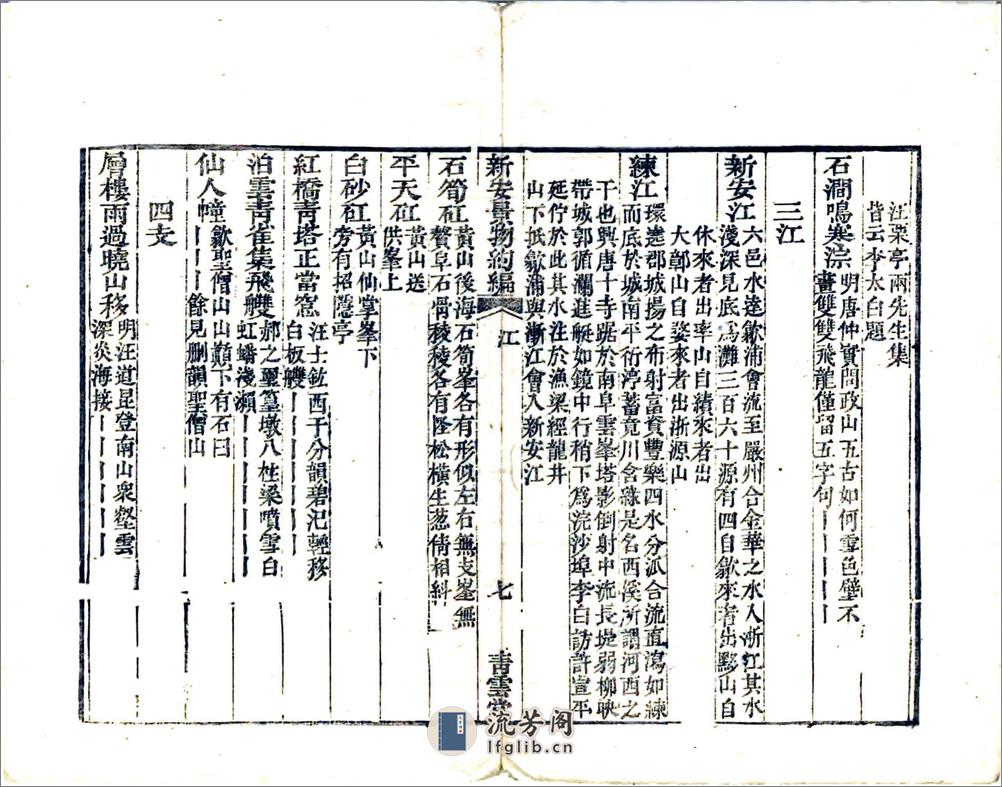 汪栗亭兩先生集
皆云李太白題
石澗鳴寒淙
明唐仲實問政山五古如何雪色壁不
畫雙雙飛龍僅留五字句｜｜｜｜｜
三江
新安江
六邑水達歙浦會流至嚴州合金華之水入浙江其水
淺深見底爲灘三百六十源有四自歙來者出黟山自
休來者出率山自績來者出
大鄣山自婺來者出浙源山
練江
環遶郡城揚之布射富資豐樂四水分派合流直瀉如練
江而底於城南平衍渟蓄竟川含綠是名西溪所謂河西之
干也興唐十寺踞於南阜雲峯塔影倒射中流長堤弱柳映
帶城郭循瀾進艇如鏡中行稍下爲浣沙埠李白訪許宣平
延佇於此其水注於漁梁經龍井
山下抵歙浦與漸江會入新安江
新安景物約編
江
七
青雲堂
石筍矼
黃山後海石筍峯各有形似左右無支峯無
贅阜石骨稜稜各有怪松橫生葱倩相糾
平天矼
黃山送
供峯上
白砂矼
黃山仙掌峯下
旁有招隱亭
紅橋靑塔正當窓
汪士鈜西干分韻碧汜輕移
白板艭｜｜｜｜｜｜｜
泊雲靑雀集飛艭
郝之璽篁墩八柱梁噴雪白
虹蟠淺瀨｜｜｜｜｜｜｜
仙人幢
歙聖僧山山巔下有石曰
｜｜｜餘見删韻聖僧山
四支
層樓雨過曉山移
明汪道昆登南山衆壑雲
深炎海接｜｜｜｜｜｜｜
流芳阁
lfglib.cn